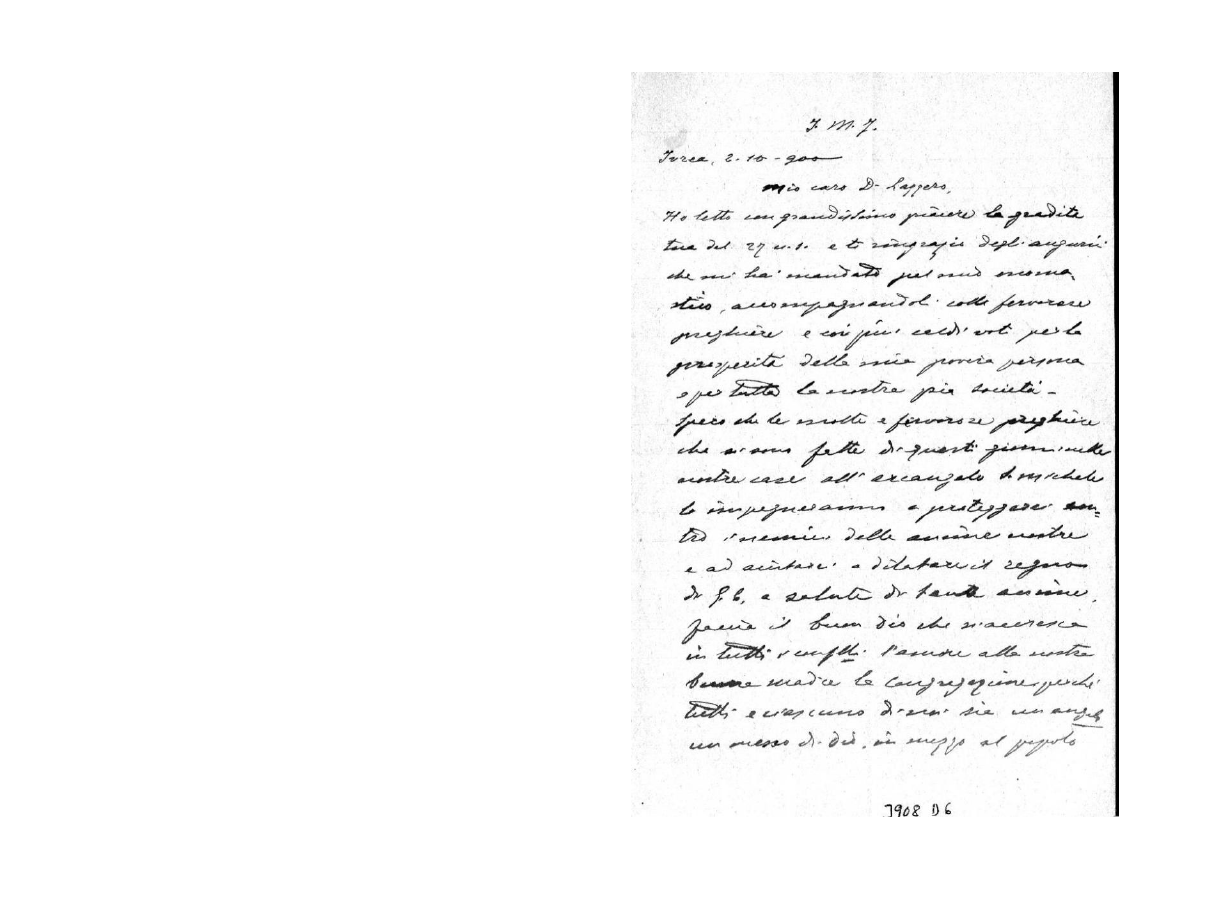 J. M. J.
Ivrea, 2-10-900
Mio caro D. Lazzero,
Ho letto con grandissimo piacere la gradita
tua del 27 u.s. e ti ringrazio degli augurii
che mi hai mandato pel mio onoma-
stico, accompagnandoli colle fervorose
preghiere e coi più caldi voti per la
prosperità della mia povera persona
e per tutta la nostra pia società -
Spero che le molte e fervorose preghiere
che si sono fatte di questi giorni nelle
nostre case all'arcangelo S. Michele
lo impegneranno a proteggerci con=
tro i nemici delle anime nostre
e ad aiutarci a dilatare il regno
di G. C. a salute di tante anime.
Faccia il buon Dio che si accresca
in tutti i confлli l'amore alla nostra
buona madre la Congregazione, perchè
tutti e ciascuno di noi sia un angelo
un messo di Dio, in mezzo al popolo
J908 D6